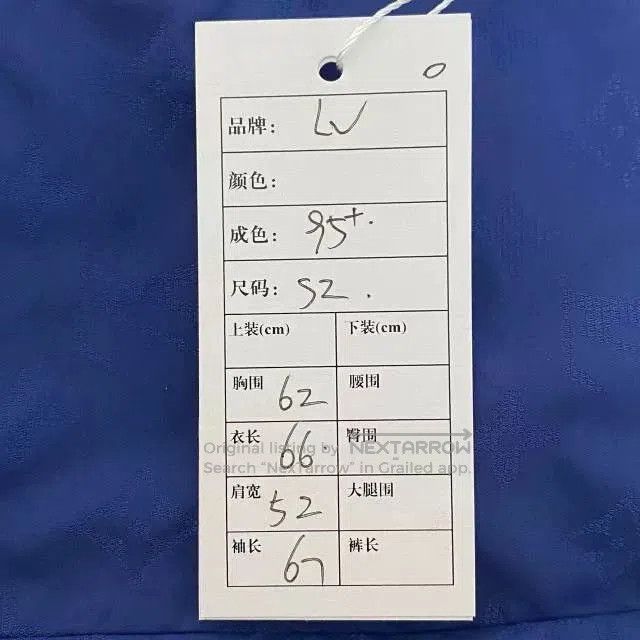 O
品牌: LV
颜色:
成色: 95+.
尺码: 52.
上装(cm) 下装(cm)
胸围 62 腰围
衣长 66. 臀围
Original listing by NEXTARROW
Search “NexTarrow” in Grailed app.
肩宽 52 大腿围
袖长 67 裤长